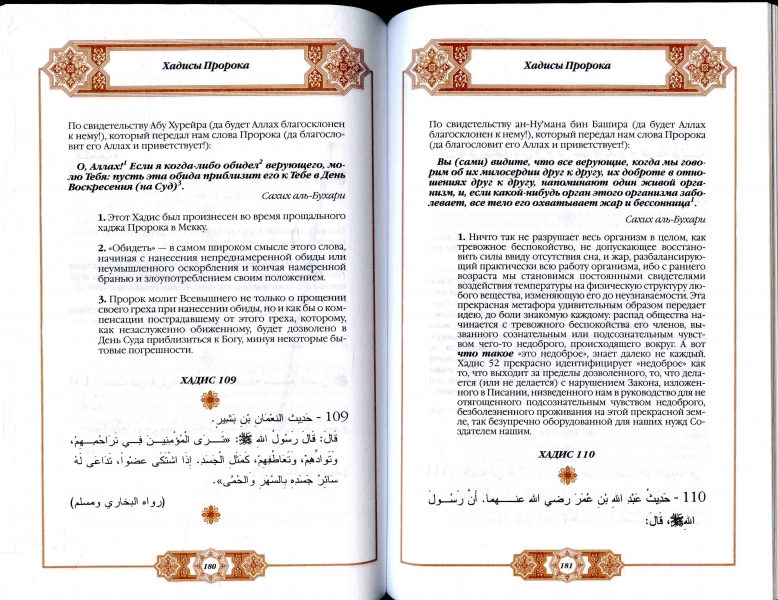 Хадисы Пророка
По свидетельству Абу Хурейра (да будет Аллах благосклонен
к нему!), который передал нам слова Пророка (да благосло-
вит его Аллах и приветствует!):
О, Аллах!¹ Если я когда-либо обидел² верующего, мо-
лю Тебя: пусть эта обида приблизит его к Тебе в День
Воскресения (на Суд)³.
Сахих аль-Бухари
1. Этот Хадис был произнесен во время прощального
хаджа Пророка в Мекку.
2. «Обидеть» — в самом широком смысле этого слова,
начиная с нанесения непреднамеренной обиды или
неумышленного оскорбления и кончая намеренной
бранью и злоупотреблением своим положением.
3. Пророк молит Всевышнего не только о прощении
своего греха при нанесении обиды, но и как бы о ком-
пенсации пострадавшему от этого греха, которому,
как незаслуженно обиженному, будет дозволено в
День Суда приблизиться к Богу, минуя некоторые бы-
товые погрешности.
ХАДИС 109
109 - حَديث النُعْمَانِ بْنِ بَشير.
قَالَ: قَالَ رَسُولُ اللهِ ﷺ: «تَـرَى الْمُؤْمِنيـنَ فِـي تَرَاحُمِـهِمْ،
وَتَوَادِّهِمْ، وَتَعَاطُفِهِمْ، كَمَثَلِ الْجَسَدِ. إذَا اشْتَكَى عضْواً، تَدَاعَى لَهُ
سَائِرُ جَسَدِهِ بِالسَّهَرِ وَالْحُمَّى».
(رواه البخاري ومسلم)
180
Хадисы Пророка
По свидетельству ан-Ну'мана бин Башира (да будет Аллах
благосклонен к нему!), который передал нам слова Пророка
(да благословит его Аллах и приветствует!):
Вы (сами) видите, что все верующие, когда мы гово-
рим об их милосердии друг к другу, их доброте в отно-
шениях друг к другу, напоминают один живой орга-
низм, и, если какой-нибудь орган этого организма забо-
левает, все тело его охватывает жар и бессонница¹.
Сахих аль-Бухари
1. Ничто так не разрушает весь организм в целом, как
тревожное беспокойство, не допускающее восстано-
вить силы ввиду отсутствия сна, и жар, разбалансирую-
щий практически всю работу организма, ибо с раннего
возраста мы становимся постоянными свидетелями
воздействия температуры на физическую структуру лю-
бого вещества, изменяющую его до неузнаваемости. Эта
прекрасная метафора удивительным образом передает
идею, до боли знакомую каждому: распад общества на-
чинается с тревожного беспокойства его членов, вы-
званного сознательным или подсознательным чувст-
вом чего-то недоброго, происходящего вокруг. А вот
что такое «это недоброе», знает далеко не каждый.
Хадис 52 прекрасно идентифицирует «недоброе» как
то, что выходит за пределы дозволенного, то, что дела-
ется (или не делается) с нарушением Закона, изложен-
ного в Писании, низведенного нам в руководство для не
отягощенного подсознательным чувством недоброго,
безболезненного проживания на этой прекрасной зем-
ле, так безупречно оборудованной для наших нужд Со-
здателем нашим.
ХАДИС 110
110 - حَديثُ عَبْدِ اللهِ بْنِ عُمَرَ رضي الله عنـهما. أنَّ رَسُـولَ
اللهِ ﷺ، قَالَ:
181